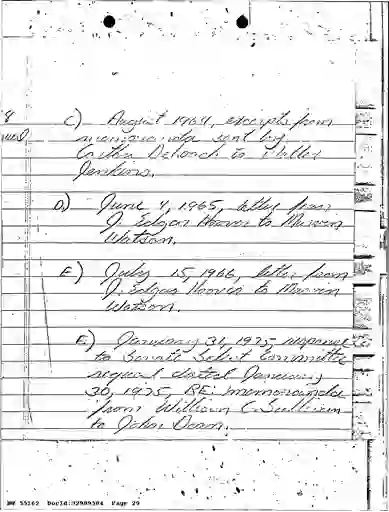 8
C) August 1964, excerpts from
memoranda sent by
Cartha DeLoach to Walter
Jenkins.
D) June 4, 1965, letter from
J. Edgar Hoover to Marvin
Watson.
E) July 15, 1966, letter from
J. Edgar Hoover to Marvin
Watson.
E) January 31, 1975 response
to Senate Select Committee
request dated January
30, 1975, RE: memoranda
from William C. Sullivan
to John Dean.
NW 55162 DocId:32989584 Page 29